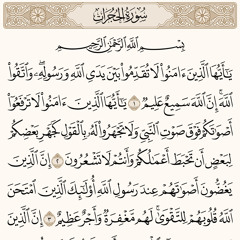 سُورَةُ الحُجُرَاتِ
بِسْمِ اللَّهِ الرَّحْمَٰنِ الرَّحِيمِ
يَٰٓأَيُّهَا ٱلَّذِينَ ءَامَنُوا۟ لَا تُقَدِّمُوا۟ بَيْنَ يَدَىِ ٱللَّهِ وَرَسُولِهِۦ ۖ وَٱتَّقُوا۟
ٱللَّهَ ۚ إِنَّ ٱللَّهَ سَمِيعٌ عَلِيمٌ ١ يَٰٓأَيُّهَا ٱلَّذِينَ ءَامَنُوا۟ لَا تَرْفَعُوٓا۟
أَصْوَٰتَكُمْ فَوْقَ صَوْتِ ٱلنَّبِىِّ وَلَا تَجْهَرُوا۟ لَهُۥ بِٱلْقَوْلِ كَجَهْرِ بَعْضِكُمْ
لِبَعْضٍ أَن تَحْبَطَ أَعْمَٰلُكُمْ وَأَنتُمْ لَا تَشْعُرُونَ ٢ إِنَّ ٱلَّذِينَ
يَغُضُّونَ أَصْوَٰتَهُمْ عِندَ رَسُولِ ٱللَّهِ أُو۟لَٰٓئِكَ ٱلَّذِينَ ٱمْتَحَنَ
ٱللَّهُ قُلُوبَهُمْ لِلتَّقْوَىٰ ۚ لَهُم مَّغْفِرَةٌ وَأَجْرٌ عَظِيمٌ ٣ إِنَّ ٱلَّذِينَ